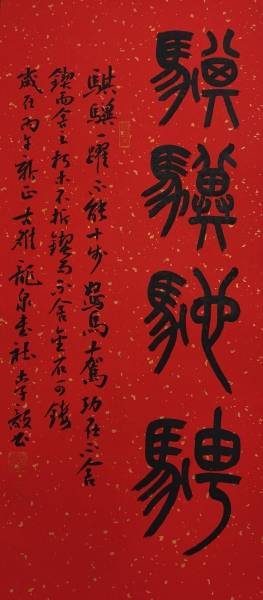 騏驥馳騁
騏驥一躍不能十步駑馬十駕功在不舍
鍥而舍之朽木不折鍥而不舍金石可鏤
歲在丙午新正雅龍泉書社李書